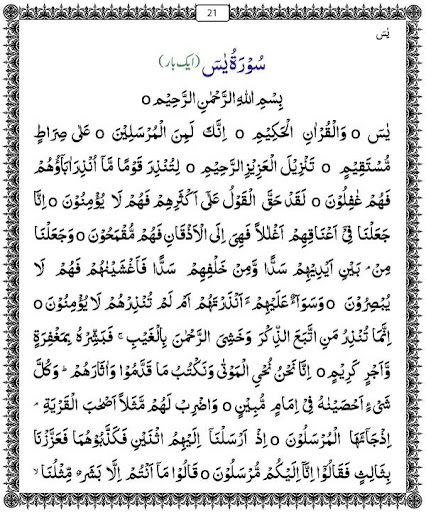 21
یٰسٓ
سُوۡرَۃُ یٰسٓ (ایک بار)
بِسۡمِ اللّٰہِ الرَّحۡمٰنِ الرَّحِیۡمِ o
یٰسٓ o وَالۡقُرۡاٰنِ الۡحَکِیۡمِ o اِنَّکَ لَمِنَ الۡمُرۡسَلِیۡنَ o عَلٰی صِرَاطٍ
مُّسۡتَقِیۡمٍ o تَنۡزِیۡلَ الۡعَزِیۡزِ الرَّحِیۡمِ o لِتُنۡذِرَ قَوۡمًا مَّاۤ اُنۡذِرَ اٰبَآؤُہُمۡ
فَہُمۡ غٰفِلُوۡنَ o لَقَدۡ حَقَّ الۡقَوۡلُ عَلٰۤی اَکۡثَرِہِمۡ فَہُمۡ لَا یُؤۡمِنُوۡنَ o اِنَّا
جَعَلۡنَا فِیۡۤ اَعۡنَاقِہِمۡ اَغۡلٰلًا فَہِیَ اِلَی الۡاَذۡقَانِ فَہُمۡ مُّقۡمَحُوۡنَ o وَجَعَلۡنَا
مِنۡۢ بَیۡنِ اَیۡدِیۡہِمۡ سَدًّا وَّمِنۡ خَلۡفِہِمۡ سَدًّا فَاَغۡشَیۡنٰہُمۡ فَہُمۡ لَا
یُبۡصِرُوۡنَ o وَسَوَآءٌ عَلَیۡہِمۡ ءَاَنۡذَرۡتَہُمۡ اَمۡ لَمۡ تُنۡذِرۡہُمۡ لَا یُؤۡمِنُوۡنَ o
اِنَّمَا تُنۡذِرُ مَنِ اتَّبَعَ الذِّکۡرَ وَخَشِیَ الرَّحۡمٰنَ بِالۡغَیۡبِ ۚ فَبَشِّرۡہُ بِمَغۡفِرَۃٍ
وَّاَجۡرٍ کَرِیۡمٍ o اِنَّا نَحۡنُ نُحۡیِ الۡمَوۡتٰی وَنَکۡتُبُ مَا قَدَّمُوۡا وَاٰثَارَہُمۡ ؕ وَکُلَّ
شَیۡءٍ اَحۡصَیۡنٰہُ فِیۡۤ اِمَامٍ مُّبِیۡنٍ o وَاضۡرِبۡ لَہُمۡ مَّثَلًا اَصۡحٰبَ الۡقَرۡیَۃِ ۘ
اِذۡ جَآءَہَا الۡمُرۡسَلُوۡنَ o اِذۡ اَرۡسَلۡنَاۤ اِلَیۡہِمُ اثۡنَیۡنِ فَکَذَّبُوۡہُمَا فَعَزَّزۡنَا
بِثَالِثٍ فَقَالُوۡۤا اِنَّاۤ اِلَیۡکُمۡ مُّرۡسَلُوۡنَ o قَالُوۡا مَاۤ اَنۡتُمۡ اِلَّا بَشَرٌ مِّثۡلُنَا ۙ